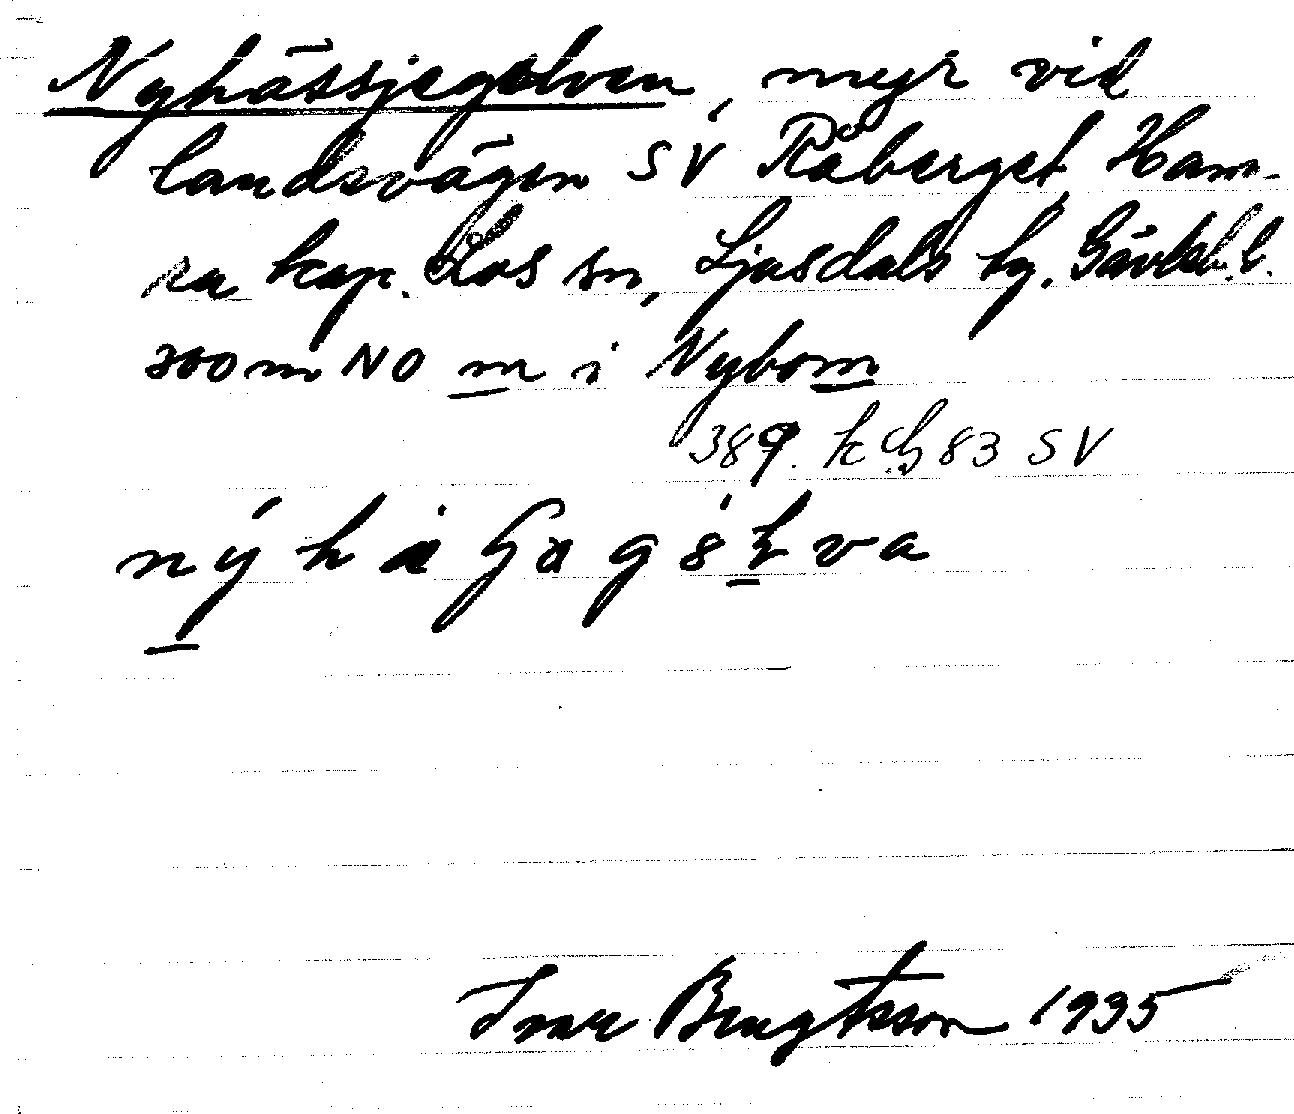 Nyhässjegölven, myr vid
landsvägen SV Råberget, Ham-
ra kap. Los sn, Ljusdals tg, Gävleb. l.
300 m NO m i Nybom
389. k bl 83 SV
Ivar Bengtsson 1935